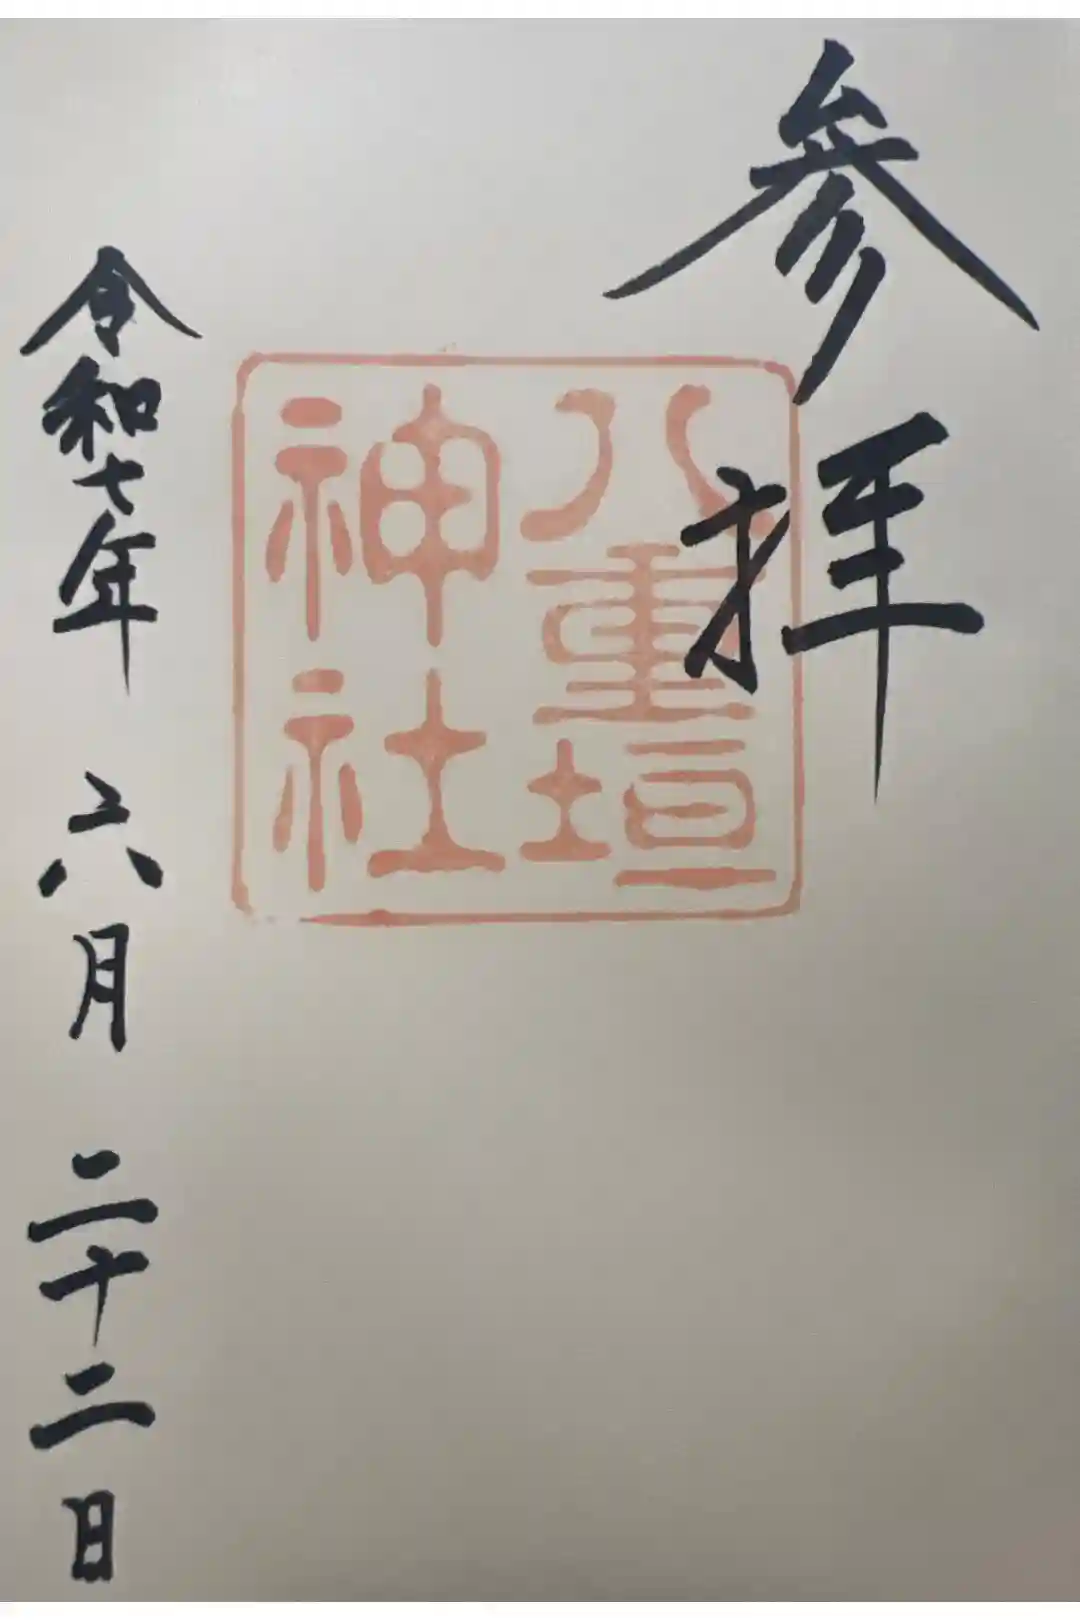 参拝
八重垣
神社
令和七年 六月 二十二日